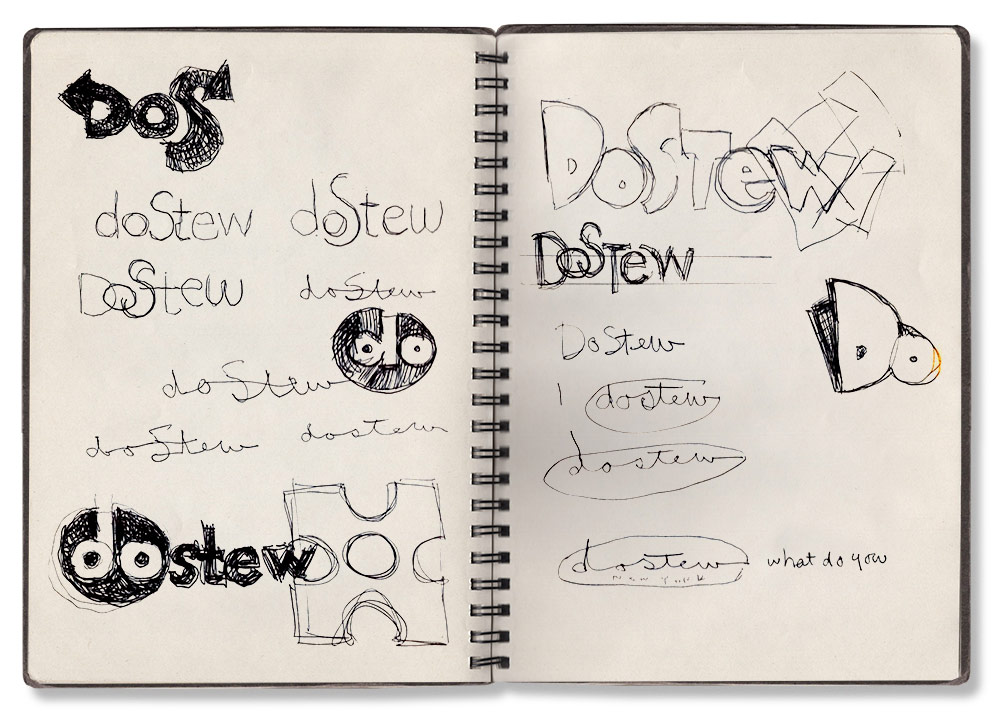 DoS
doStew
doStew
DoStew
doStew
do
doStew
doStew
dostew
dostew
DoStew
DoStew
DoStew
dostew
dostew
Do
dostew
NEW YORK
what do you